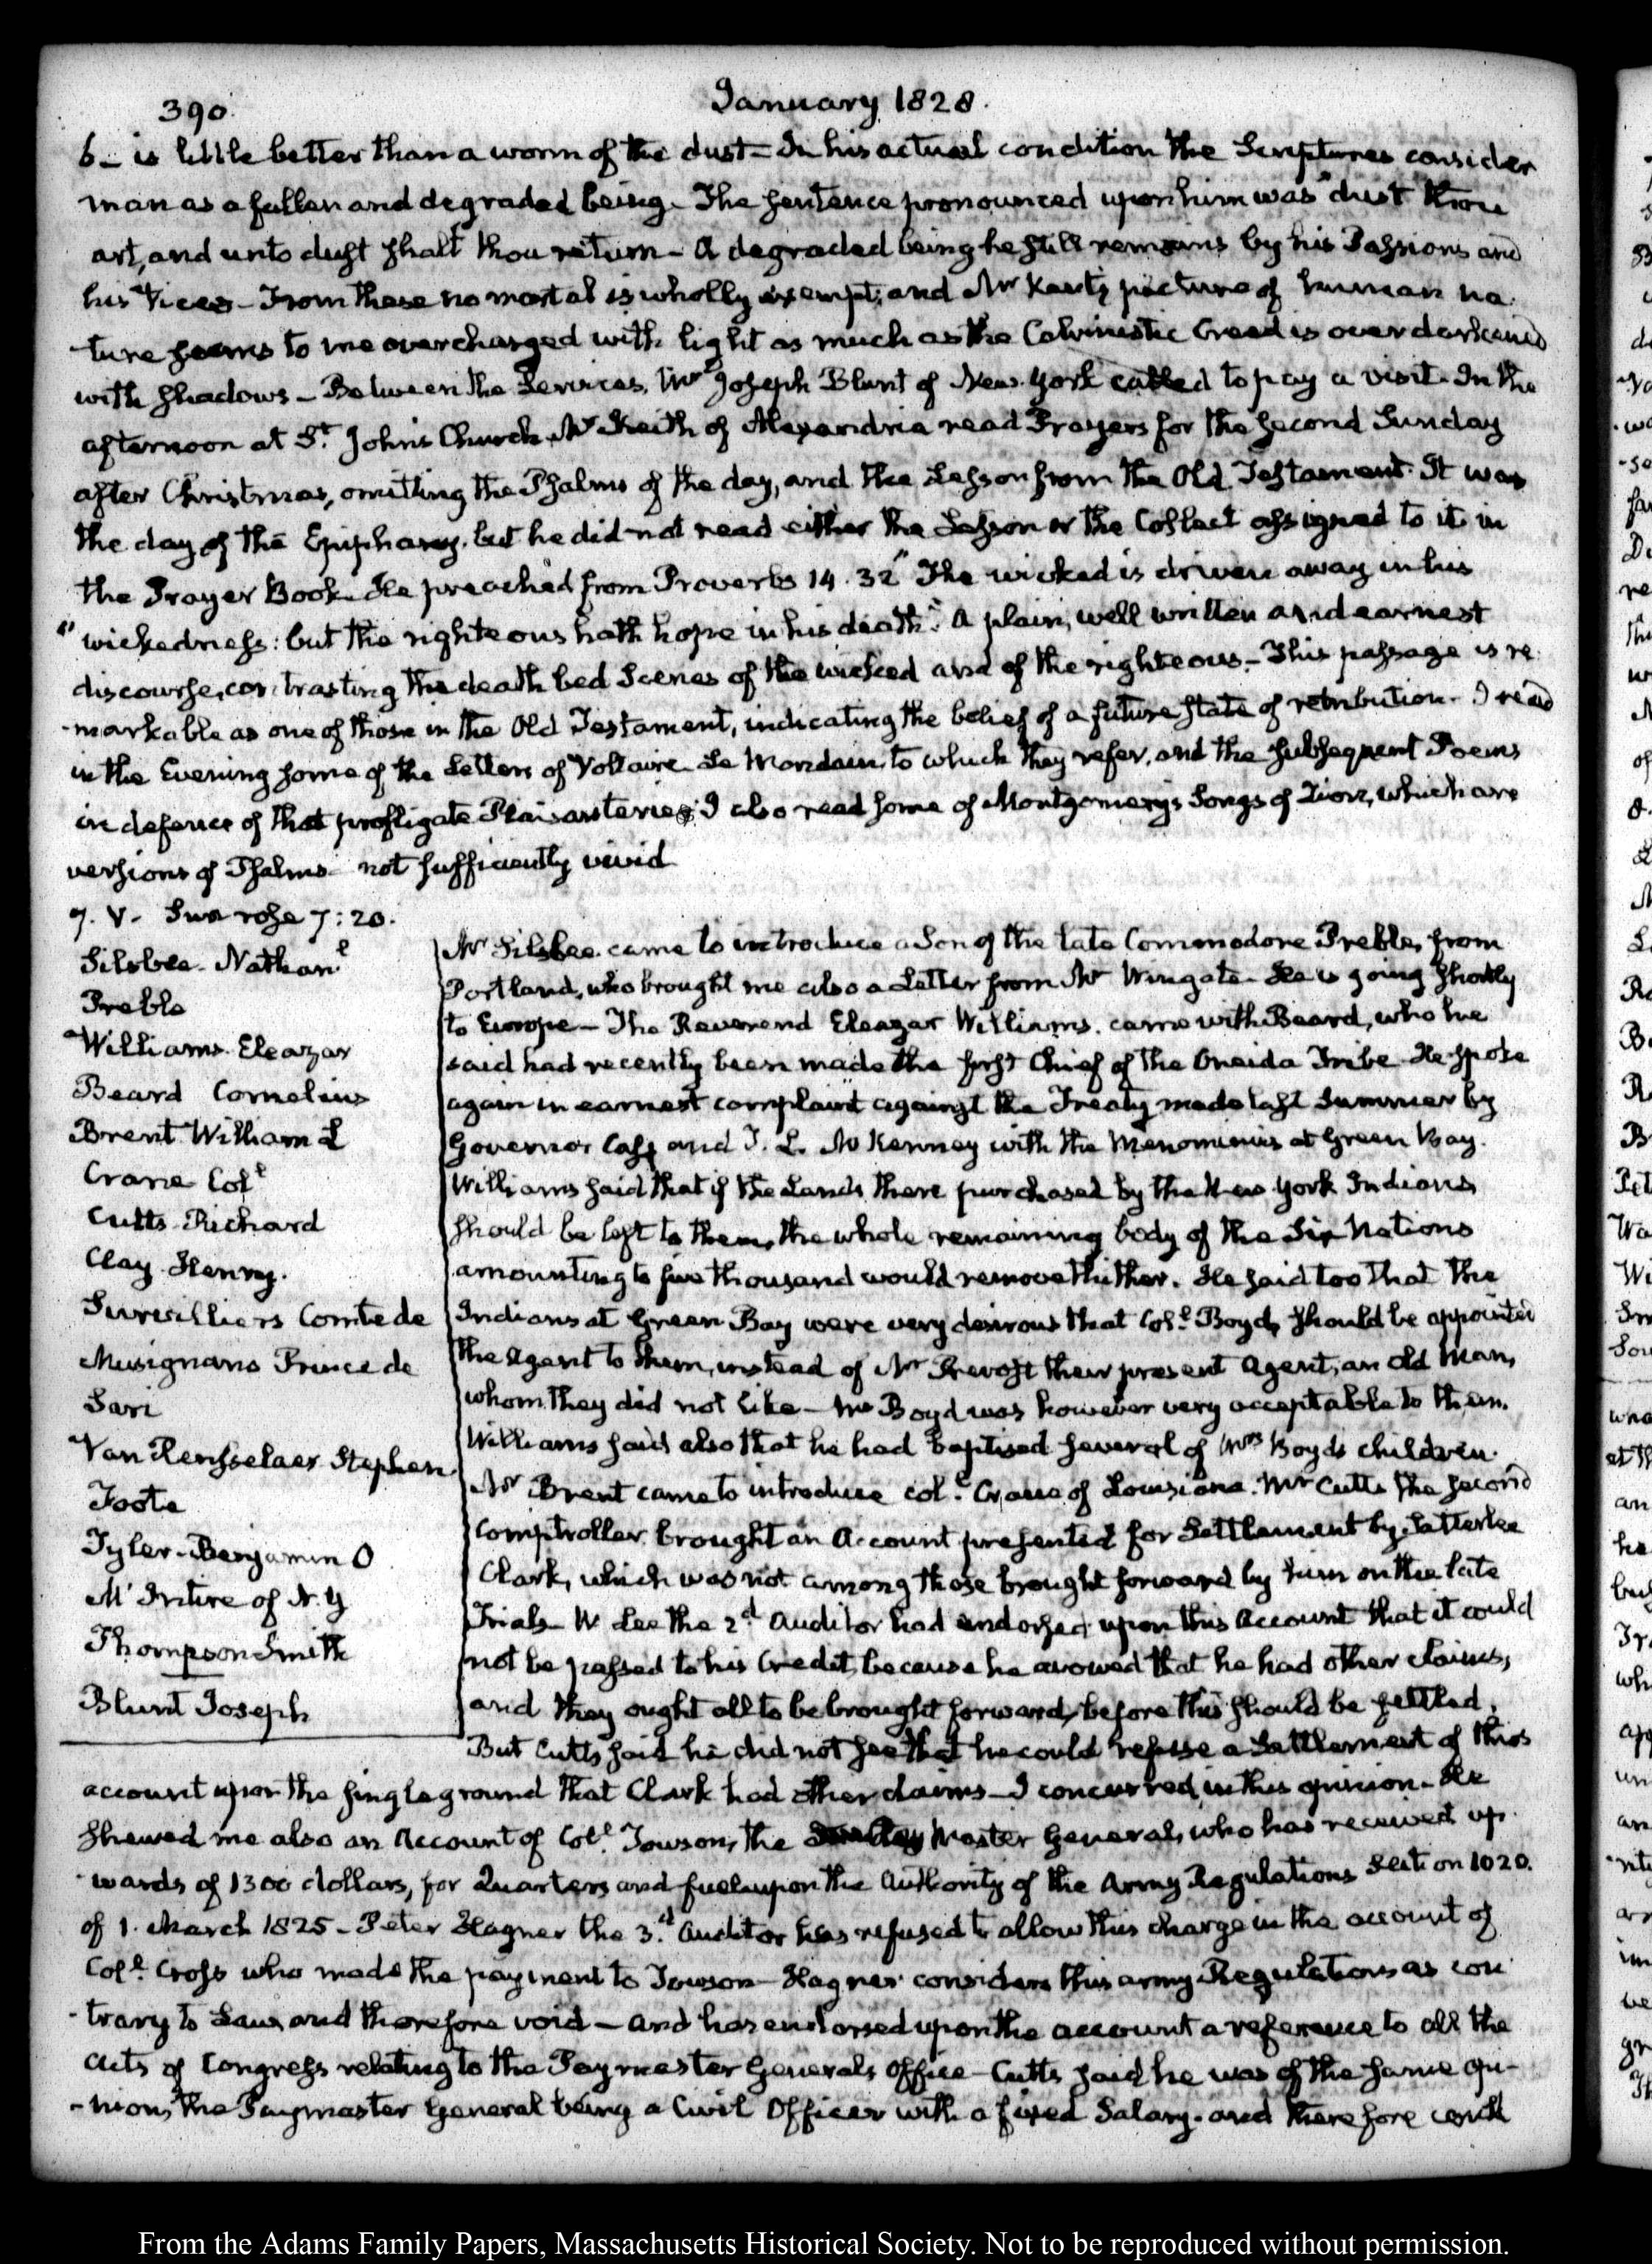 390.
January 1828.
6_ is little better than a worm of the dust_ In his actual condition the Scriptures consider
man as a fallen and degraded being_ The sentence pronounced upon him was "dust thou
art, and unto dust shalt thou return_ A degraded being he still remains by his Passions and
his Vices_ From these no mortal is wholly exempt; and Mr picture of human na
-ture seems to me overcharged with light as much as the Calvinistic Creed is overdarkened
with shadows_ Between the Services, Mr Joseph Blunt of New-York called to pay a visit. In the
afternoon at St. John's Church Mr Keith of Alexandria read Prayers for the second Sunday
after Christmas, omitting the Psalms of the day, and the Lesson from the Old Testament. It was
the day of the Epiphany, but he did not read either the Lesson or the Collect assigned to it in
the Prayer Book_ He preached from Proverbs 14. 32 "The wicked is driven away in his
"wickedness: but the righteous hath hope in his death." A plain, well written and earnest
discourse, contrasting the death bed Scenes of the wicked and of the righteous_ This passage is re
-markable as one of those in the Old Testament, indicating the belief of a future state of retribution_ I read
in the Evening some of the Letters of Voltaire_ Le Mondain, to which they refer, and the subsequent Poems
in defence of that profligate Plaisanterie; I also read some of Montgomery's Songs of Zion, which are
versions of Psalms_ not sufficiently vivid
7. V. Sun rose 7:20.
Silsbee. Nathanl
Preble
Williams. Eleazar
Beard Cornelius
Brent William L
Crane Coll
Cutts Richard
Clay Henry.
Survilliers Comte de
Musignano Prince de
Sari
Van Rensselaer Stephen
Foote
Tyler. Benjamin O
McIntire of N.Y
Thompson Smith
Blunt Joseph
Mr Silsbee came to introduce a Son of the late Commodore Preble, from
Portland, who brought me also a Letter from Mr Wingate_ He is going shortly
to Europe_ The Reverend Eleazar Williams. came with Beard, who he
said had recently been made the first Chief of the Oneida Tribe_ He spoke
again in earnest complaint against the Treaty made last Summer by
Governor Cass and T. L. McKenney with the Menominies at Green Bay.
Williams said that if the Lands there purchased by the New York Indians,
should be left to them, the whole remaining body of the Six Nations
amounting to five thousand would remove thither. He said too that the
Indians at Green Bay were very desirous that Coll. Boyd, should be appointed
the Agent to them, instead of Mr Prevost their present Agent, an old man,
whom they did not like_ Mr Boyd was however very acceptable to them.
Williams said also that he had baptised several of Mrs Boyd's children.
Mr Brent came to introduce Coll. Crane of Louisiana. Mr Cutts the second
Comptroller brought an Account presented for Settlement by Satterlee
Clark, which was not among those brought forward by him on the late
Trial_ W Lee the 2d Auditor had endorsed upon this Account that it could
not be passed to his Credit, because he avowed that he had other claims,
and they ought all to be brought forward, before this should be settled.
But Cutts said he did not see that he could refuse a Settlement of this
account upon the single ground that Clark had other claims_ I concurred in this opinion_ He
shewed me also an Account of Coll. Towson, the Master General, who has received up
-wards of 1300 dollars, for Quarters and fuel upon the Authority of the Army Regulations Section 1020.
of 1. March 1825_ Peter Hagner the 3.d Auditor has refused to allow this charge in the account of
Coll. Cross who made the payment to Towson_ Hagner considers this army Regulations as con
-trary to Law, and therefore void_ and has endorsed upon the account a reference to all the
Acts of Congress relating to the Paymaster Generals Office_ Cutts said he was of the same opi-
-nion, the Paymaster General being a Civil Officer with a fixed Salary. and therefore
From the Adams Family Papers, Massachusetts Historical Society. Not to be reproduced without permission.